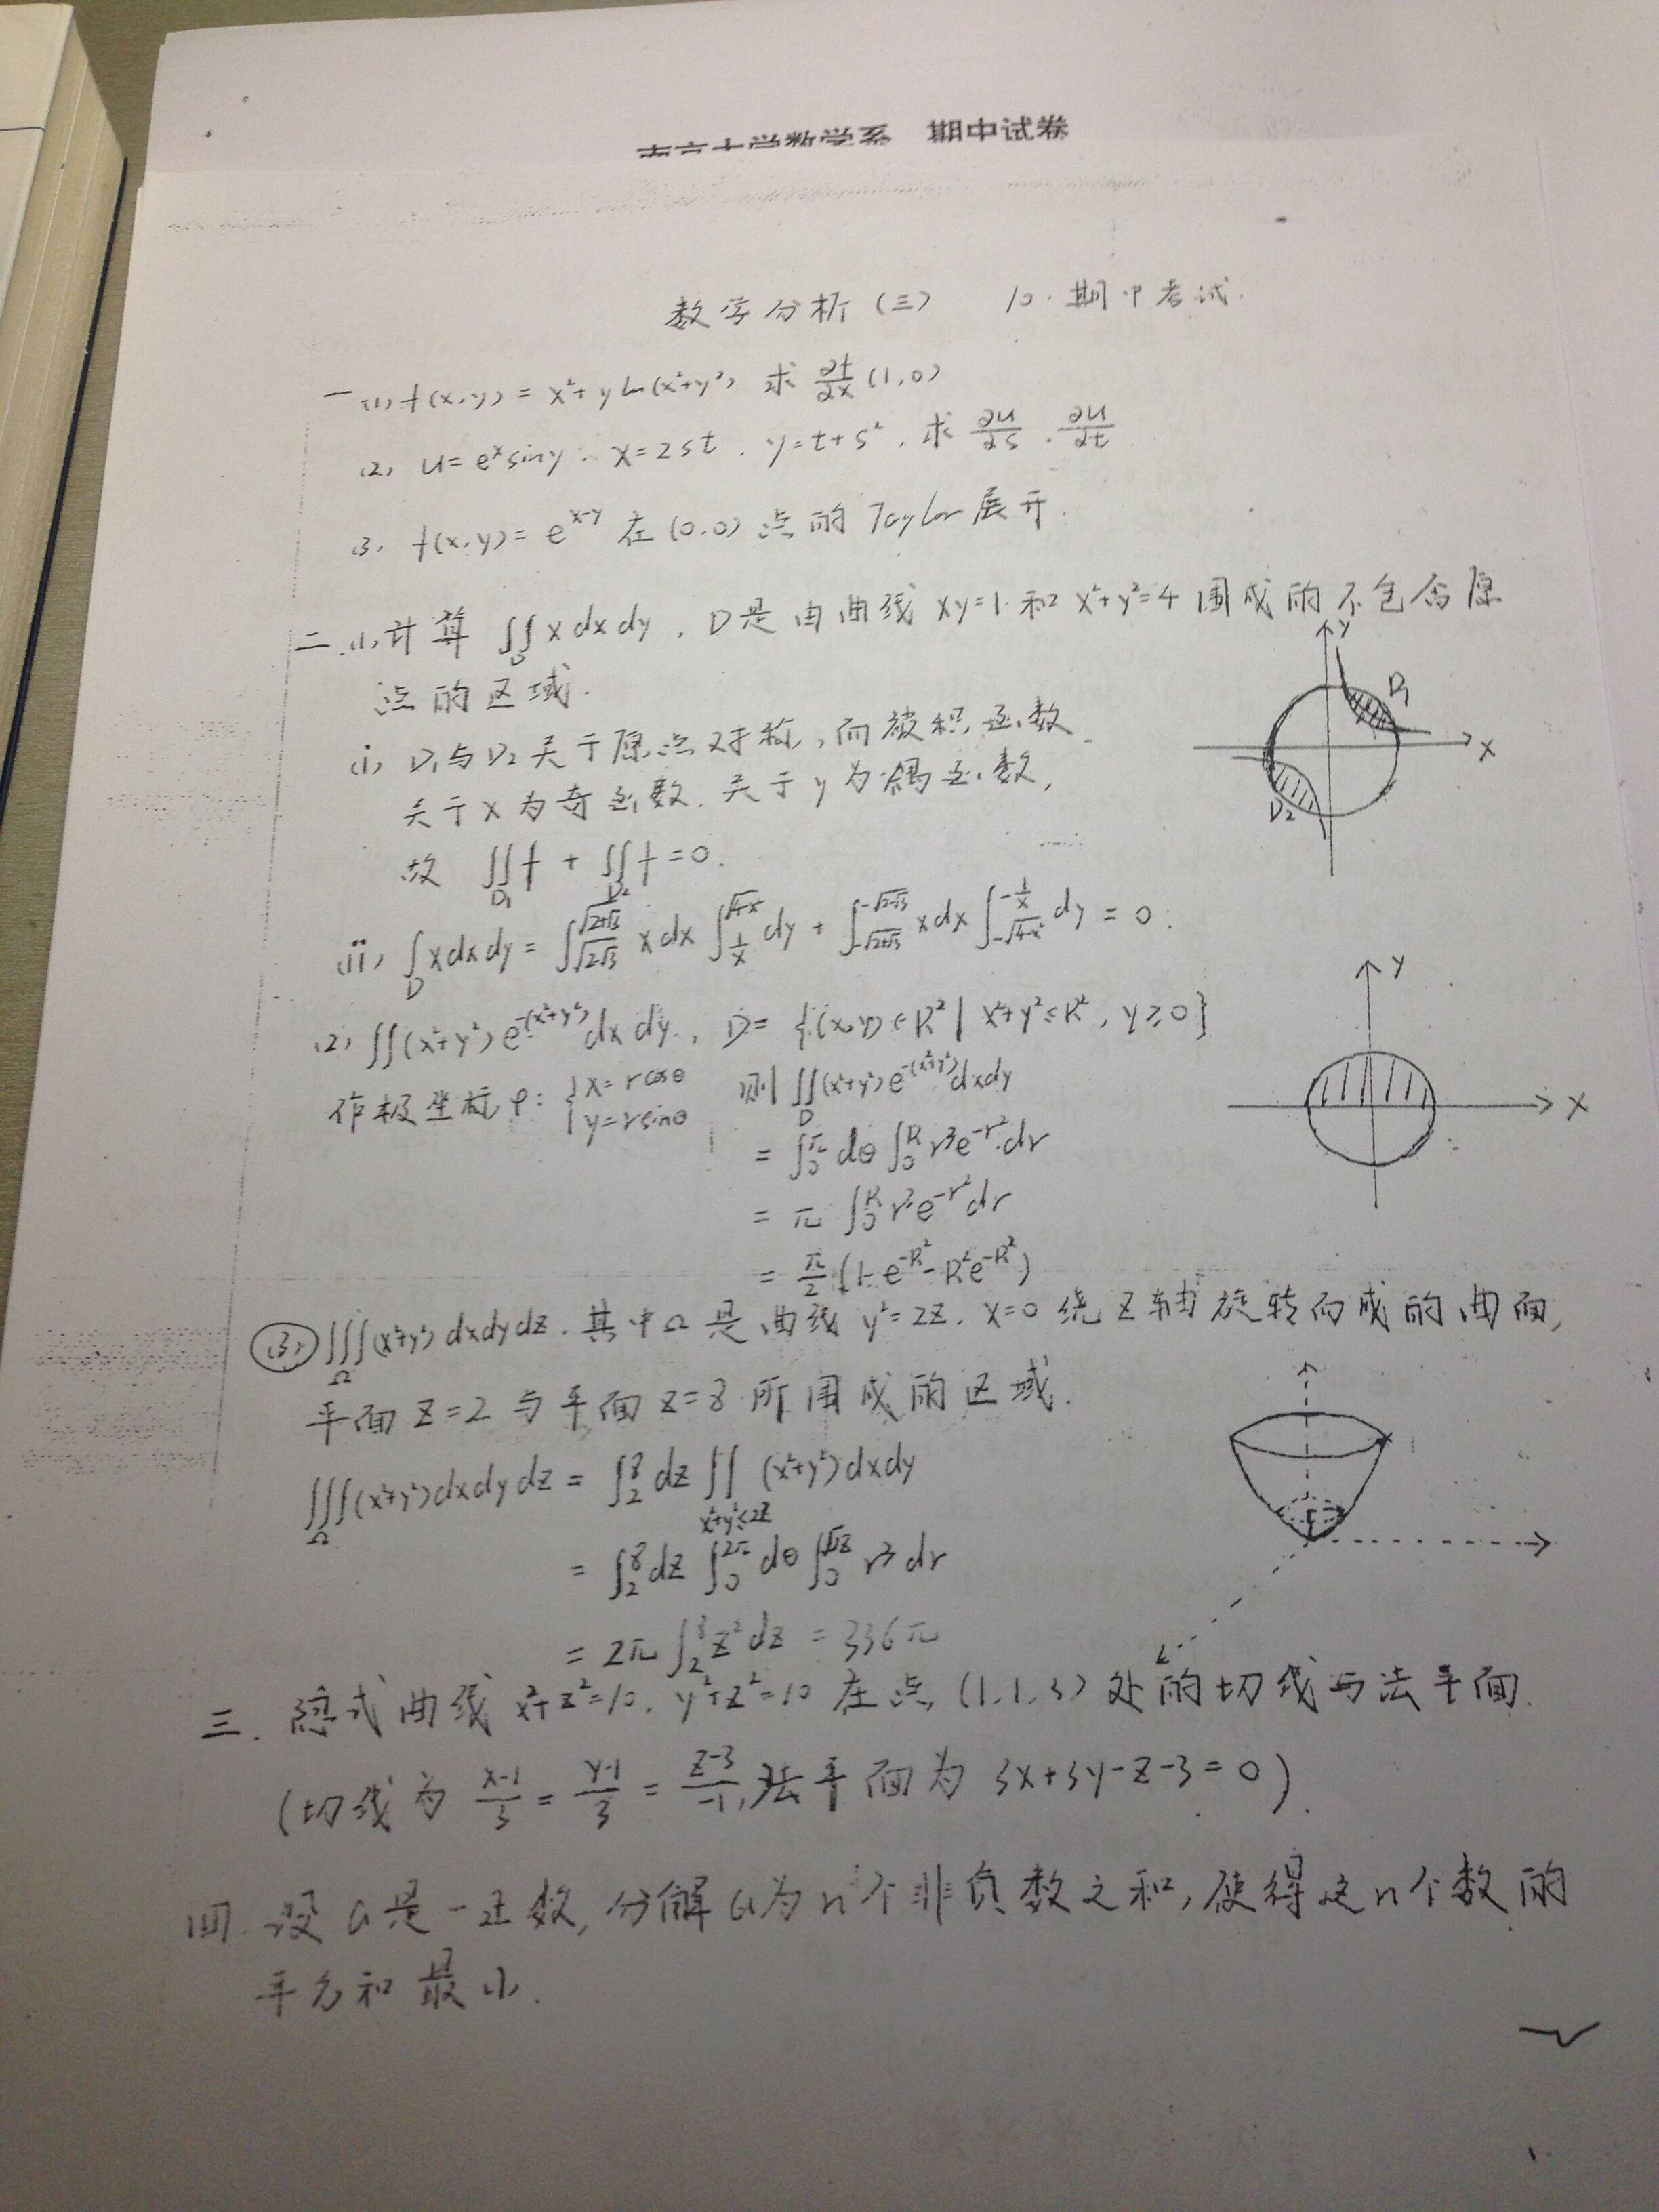 南京大学数学系 期中试卷
数学分析(三) 10.期中考试.
一(1) f(x,y) = x²+yln(x²+y²) 求 ∂f/∂x (1,0)
(2) u=eˣsiny. x=2st, y=t+s², 求 ∂u/∂s . ∂u/∂t
(3) f(x,y)=e^(x-y) 在(0,0)点的Taylor展开.
二.(1)计算 ∬_D xdxdy, D是由曲线xy=1和x²+y²=4围成的不包含原
点的区域.
y
D₁
x
D₂
(i) D₁与D₂关于原点对称,而被积函数
关于x为奇函数.关于y为偶函数,
故 ∬_D₁ f + ∬_D₂ f = 0.
(ii) ∫_D xdxdy = ∫_{√(2-√3)}^{√(2+√3)} xdx ∫_{1/x}^{√(4-x²)} dy + ∫_{-√(2+√3)}^{-√(2-√3)} xdx ∫_{-√(4-x²)}^{-1/x} dy = 0.
(2) ∬(x²+y²)e^{-(x²+y²)}dxdy, D={(x,y)∈R² | x²+y²≤R², y≥0}
y
x
作极坐标φ: {x=rcosθ y=rsinθ 则∬_D (x²+y²)e^{-(x²+y²)}dxdy
= ∫_0^π dθ ∫_0^R r³e^{-r²}dr
= π ∫_0^R r³e^{-r²}dr
= π/2 (1-e^{-R²}-R²e^{-R²})
(3) ∭_Ω (x²+y²)dxdydz.其中Ω是曲线y²=2z, x=0绕z轴旋转而成的曲面,
平面z=2与平面z=8所围成的区域.
∭_Ω (x²+y²)dxdydz = ∫_2^8 dz ∬_{x²+y²≤2z} (x²+y²)dxdy
= ∫_2^8 dz ∫_0^{2π} dθ ∫_0^{√2z} r³dr
= 2π ∫_2^8 z²dz = 336π
三. 隐式曲线x²+z²=10, y²+z²=10在点(1,1,3)处的切线与法平面.
(切线为 (x-1)/3 = (y-1)/3 = (z-3)/-1, 法平面为 3x+3y-z-3=0).
四.设a是一正数,分解a为n个非负数之和,使得这n个数的
平方和最小.